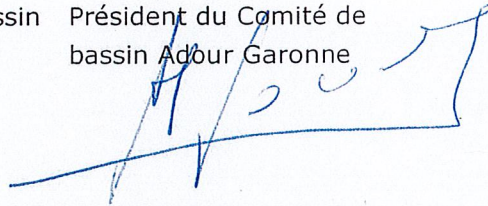 ssin Président du Comité de
bassin Adour Garonne